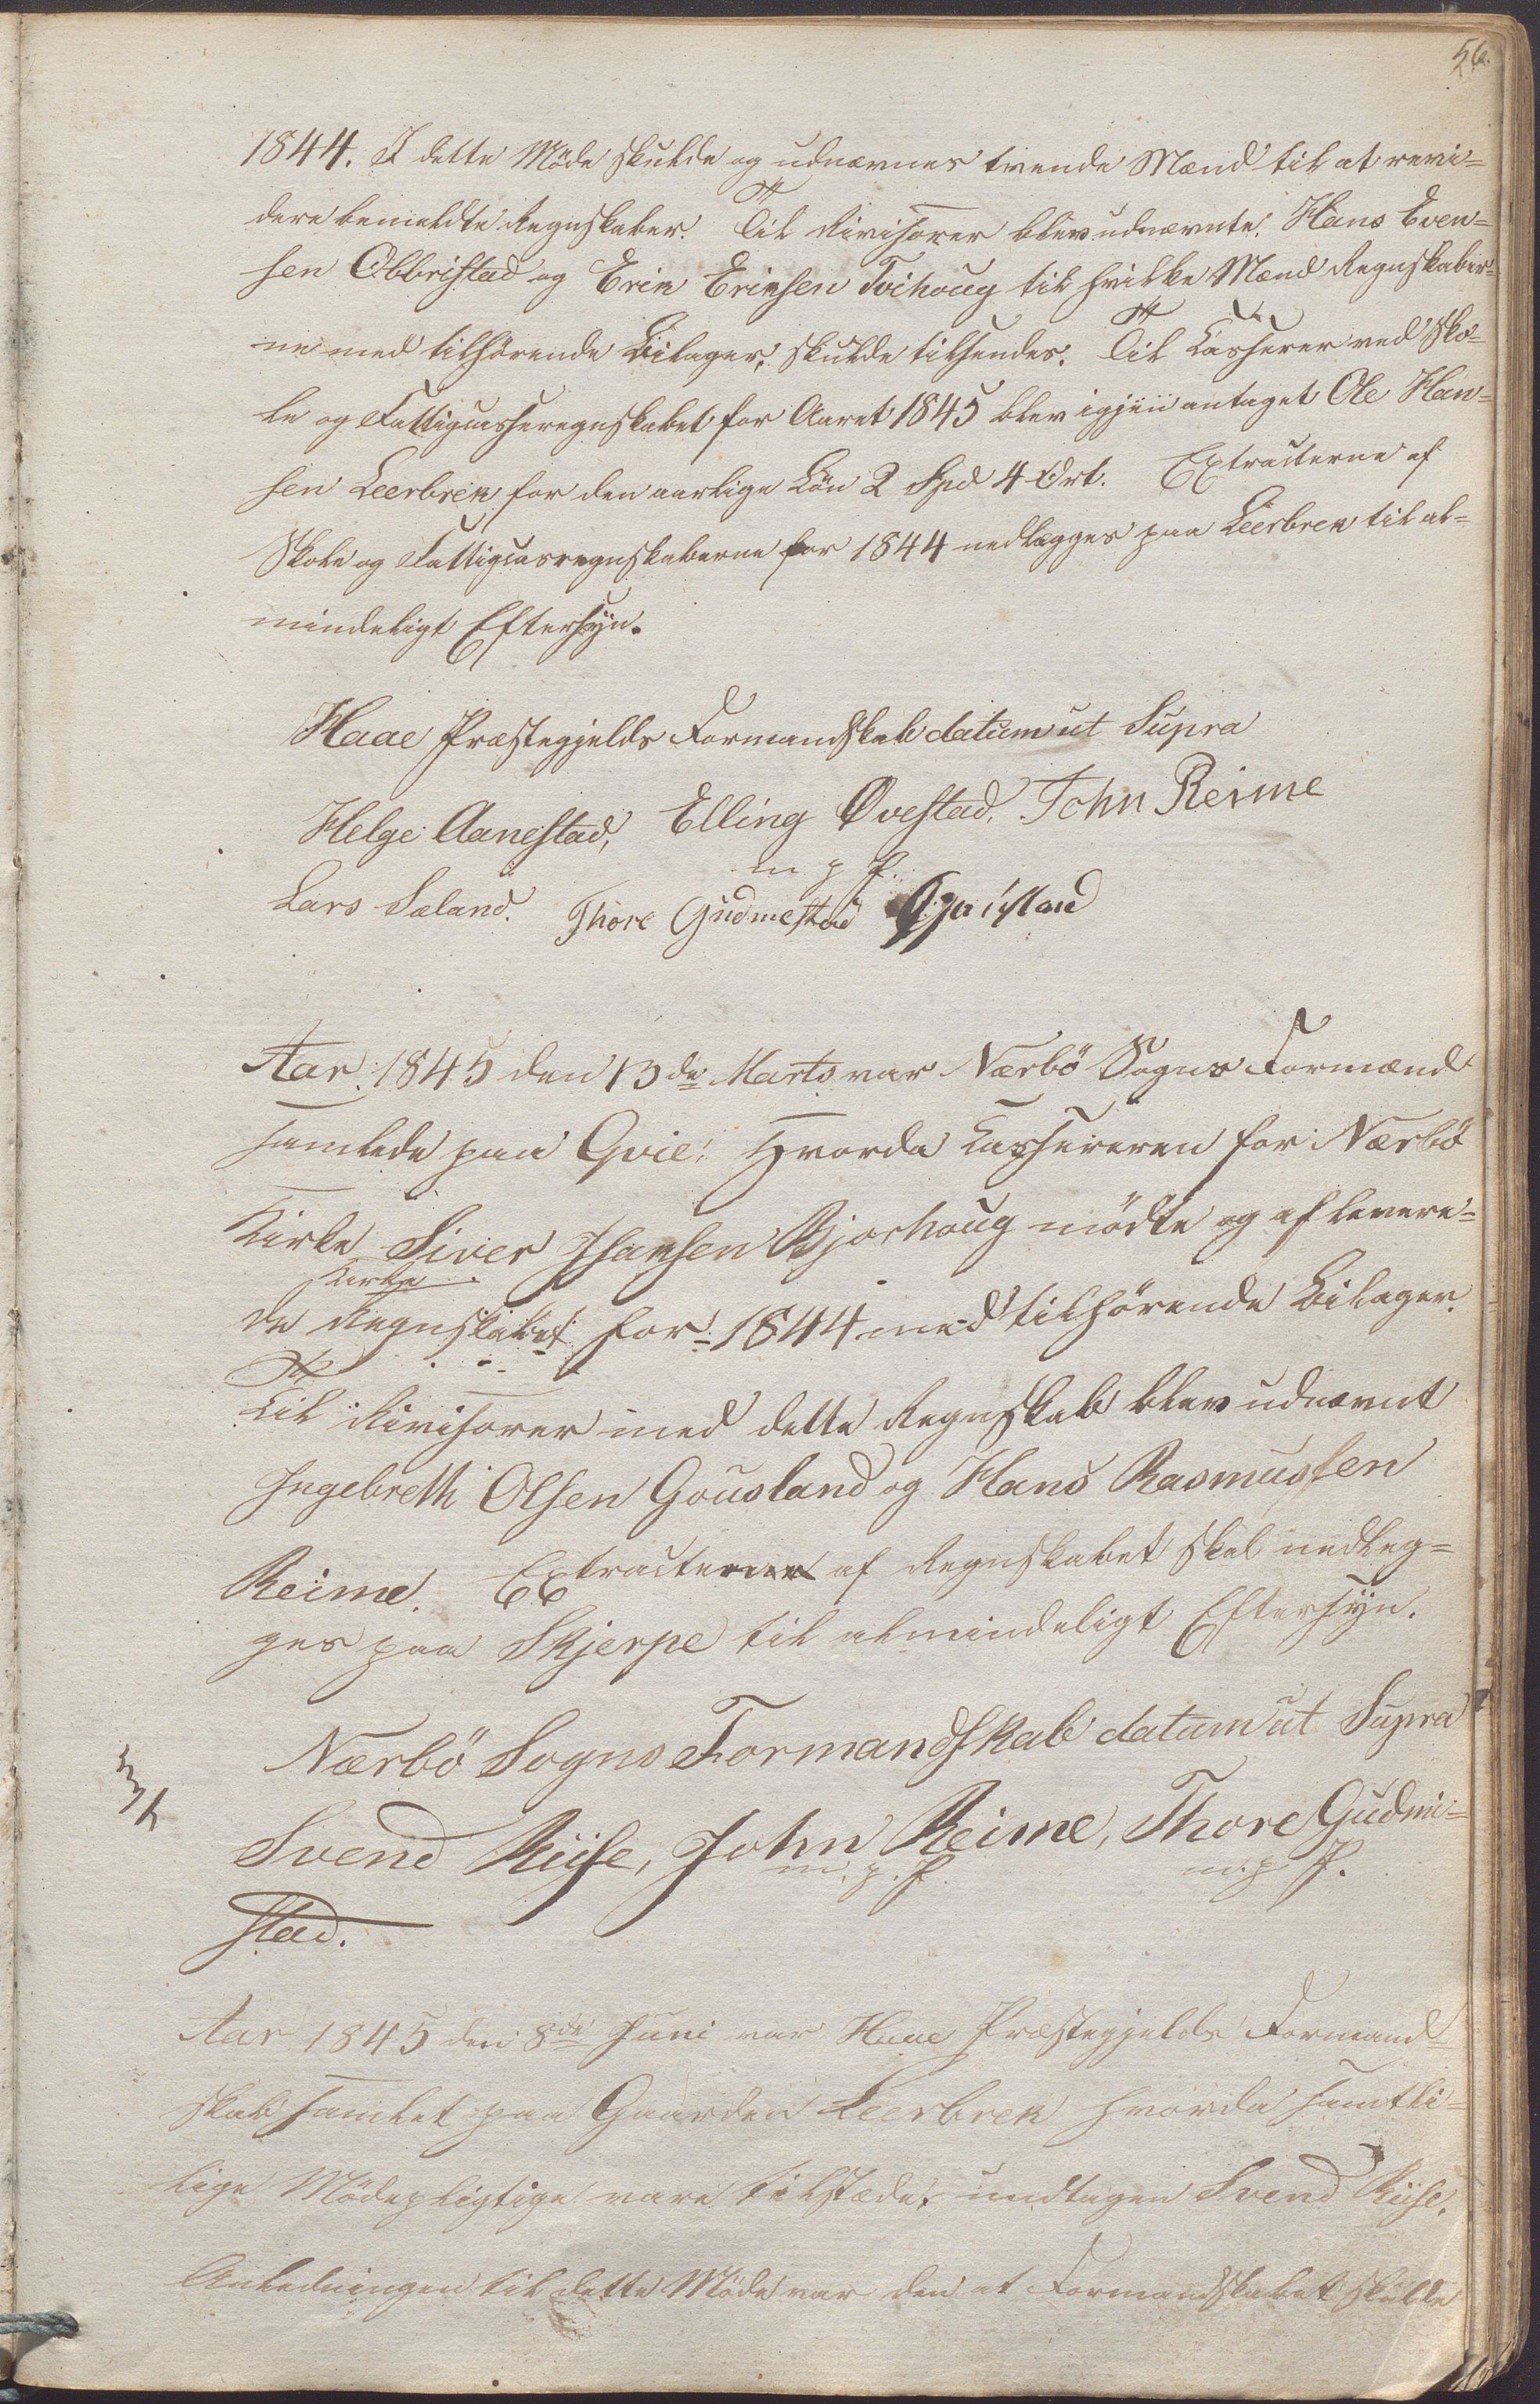 56.
1844. I dette Møde skulde og udnævnes tvende Mænd til at revi=
dere bemeldte Regnskaber. Til Revisorer blev udnævnte: Hans Even=
sen Obbristad og Erik Eriksen Tvihoug til hvilke Mænd Regnskaber=
ne med tilhørende Bilager, skulde tilsendes. Til Casserer ved Sko=
le og Fattigcasseregnskabet for Aaret 1845 blev igjen antaget Ole Han=
sen Leerbrek for den aarlige Løn 2 Spd 4 Ort. Extracterne af
Skole og Fattigcasregnskaberne for 1844 nedlægges paa Leerbrek til al=
mindeligt Eftersyn.
Haae Præstegjelds Formandskab datum ut Supra
Helge Aanestad, Elling Ovestad. John Reime
m p P.
Lars Sæland. Thore Gudmestad
Aar 1845 den 13de Marts var Nærbö Sogns Formænd
samlede paa Qvie: Hvorda Cassereren for Nærbö
Kirke Siver Isaksen Bjorhoug mödte og aflevere=
Kirke
de Regnskabet for 1844 med tilhörende Bilager.
Til Revisorer med dette Regnskab blev udnævnt
Ingebreth Olsen Gousland og Hans Rasmussen
Reime. Extracterne af Regnskabet skal nedleg=
ges paa Skjerpe til almindeligt Eftersyn.
Nærbö Sogns Formandskab datum ut Supra
Svend Riise, John Reime, Thore Gudme=
m. p. P. m. p P.
stad.
Aar 1845 den 8de Juni var Haae Præstegjelds Formand=
skab samlet paa Gaarden Leerbrek hvorda samtli=
lige Mödepligtige vare tilstæde, undtagen Svend Riise.
Anledningen til dette Möde var den at Formandskabet skulde